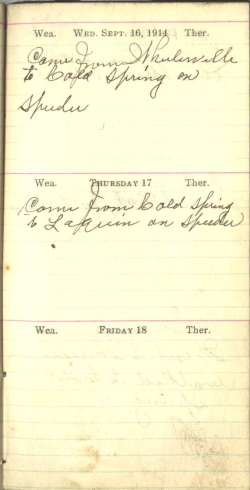 Wea. WED. SEPT. 16, 1914 Ther.
Come from Wheelerville
to Cold Spring on
Speeder
Wea. THURSDAY 17 Ther.
Come from Cold Spring
to Laquin on Speeder
Wea. FRIDAY 18 Ther.